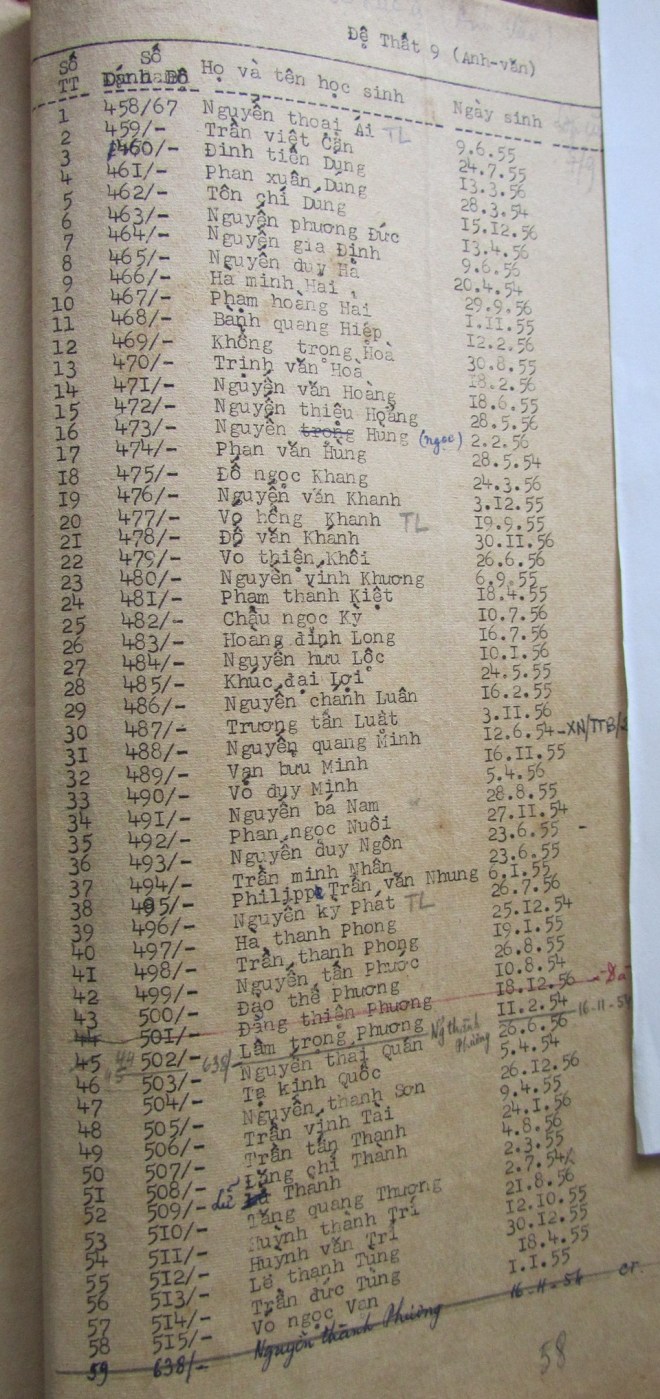 Đệ Thất 9 (Anh-văn)
Số TT Số Danh Bộ Họ và tên học sinh Ngày sinh
1 458/67 Nguyễn thoại Ái TL 9.6.55
2 459/- Trần việt Cẩn 24.7.55
3 460/- Đinh tiến Dũng 13.3.56
4 461/- Phan xuân Dũng 28.3.54
5 462/- Tôn chí Dũng 15.12.56
6 463/- Nguyễn phương Đức 13.4.56
7 464/- Nguyễn gia Định 9.6.56
8 465/- Nguyễn duy Hà 20.4.54
9 466/- Hà minh Hải 29.9.56
10 467/- Phạm hoàng Hải 1.11.55
11 468/- Bành quang Hiệp 12.2.56
12 469/- Khổng trọng Hoà 30.8.55
13 470/- Trịnh văn Hoà 18.2.56
14 471/- Nguyễn văn Hoàng 18.6.55
15 472/- Nguyễn thiệu Hoàng 28.5.56
16 473/- Nguyễn trọng Hùng (ngọc) 2.2.56
17 474/- Phan văn Hùng 28.5.54
18 475/- Đỗ ngọc Khang 24.3.56
19 476/- Nguyễn văn Khanh 3.12.55
20 477/- Võ hồng Khanh TL 19.9.55
21 478/- Đỗ văn Khánh 30.11.56
22 479/- Võ thiện Khôi 26.6.56
23 480/- Nguyễn vĩnh Khương 6.9.55
24 481/- Phạm thành Kiệt 18.4.55
25 482/- Châu ngọc Kỳ 10.7.56
26 483/- Hoàng đình Long 16.7.56
27 484/- Nguyễn hữu Lộc 10.1.56
28 485/- Khúc đại Lợi 24.5.55
29 486/- Nguyễn chánh Luân 16.2.55
30 487/- Trương tấn Luật 3.11.56
31 488/- Nguyễn quang Minh 12.6.54-XN/TTB/
32 489/- Vạn bưu Minh 16.11.55
33 490/- Võ duy Minh 5.4.56
34 491/- Nguyễn bá Nam 28.8.55
35 492/- Phan ngọc Nuôi 27.11.54
36 493/- Nguyễn duy Ngôn 23.6.55 -
37 494/- Trần minh Nhân 23.6.55
38 495/- Philippe Trần văn Nhung 6.1.55
39 496/- Nguyễn kỳ Phát TL 26.7.56
40 497/- Hà thanh Phong 25.12.54
41 498/- Trần thanh Phong 19.1.55
42 499/- Nguyễn tấn Phước 26.8.55
43 500/- Đào thế Phương 10.8.54
44 501/- Đặng thiên Phương 18.12.56
45 44 502/- 638/ Lâm trọng Phương Ng thành Phương 11.2.54 16-11-54
46 45 503/- Nguyễn thái Quân 26.6.56
47 504/- Tạ kinh Quốc 5.4.54
48 505/- Nguyễn thanh Sơn 26.12.56
49 506/- Trần vĩnh Tài 9.4.55
50 507/- Trần tấn Thạnh 24.1.56
51 508/- Lăng chí Thành 4.8.56
52 509/- Lữ Thành 2.3.55
53 510/- Tăng quang Thượng 2.7.54
54 511/- Huỳnh thành Trí 21.8.56
55 512/- Huỳnh văn Trí 12.10.55
56 513/- Lê thanh Tùng 30.12.55
57 514/- Trần đức Tùng 18.4.55
58 515/- Võ ngọc Vạn 1.1.55
59 638/- Nguyễn thành Phương 16-11-54 cr.
58